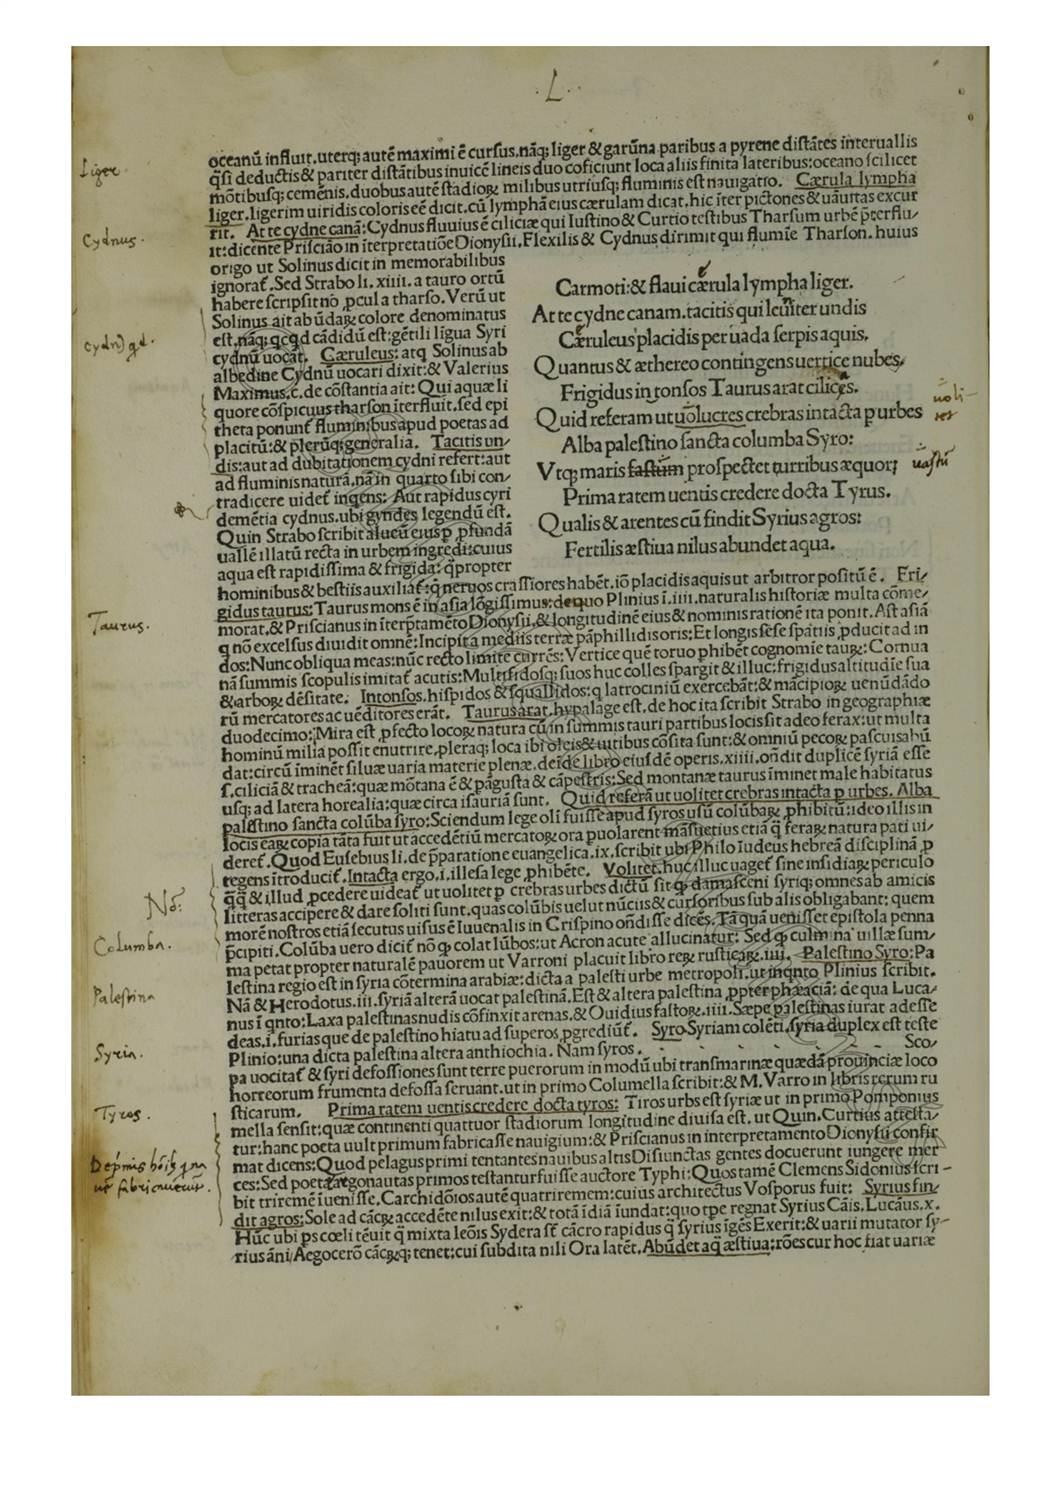 .L.
oceanū influit.uterq; autē maximi ē cursus.nāq; liger & garūna paribus a pyrene distātes interuallis
q̄si deductis & pariter distātibus inuicē lineis duo coficiunt loca aliis finita lateribus:oceano scilicet
mōtibusq; cemēnis.duobus autē stadioꝝ milibus utriusq; fluminis est nauigatio. Cærula lympha
liger.ligerim uiridis coloris eē dicit.cū lymphā eius cærulam dicat.hic īter pictones & uauritas excur
rit. At te cydne canā: Cydnus fluuius ē ciliciæ qui Iustino & Curtio testibus Tharsum urbē p̄terflu/
it:dicente Prisciāo in īterpretatiōe Dionysii. Flexilis & Cydnus dirimit qui flumīe Tharson. huius
origo ut Solinus dicit in memorabilibus
ignorat̄. Sed Strabo li. xiiii. a tauro ortū
habere scripsit nō ꝓcul a tharso. Verū ut
Solinus ait ab ūdaꝝ colore denominatus
est.nāq; qcqd cādidū est:gētili ligua Syri
cydnū uocāt. Cæruleus: atq Solinus ab
albedine Cydnū uocari dixit: & Valerius
Maximus.c. de cōstantia ait: Qui aquæ li
quore cōspicuus tharson īterfluit.sed epi
theta ponunt̄ fluminibus apud poetas ad
placitū: & plerūq; generalia. Tacitis un/
dis:aut ad dubitationem cydni refert:aut
ad fluminis naturā.nā in quarto sibi con/
tradicere uidet̄ inqens: Aut rapidus cyri
demētia cydnus.ubi gyndes legendū est.
Quin Strabo scribit alueū eius ꝑ ꝓfundā
uallē illatū recta in urbem ingredi:cuius
aqua est rapidissima & frigida: q̄propter
Carnoti:& flaui cærula lympha liger.
At te cydne canam.tacitis qui leuiter undis
Cæruleus placidis per uada serpis aquis.
Quantus & æthereo contingens uertice nubes,
Frigidus intonsos Taurus arat cilices.
Quid referam ut uolucres crebras intacta p urbes
Alba palestino sancta columba Syro:
Vtq; maris fastum prospectet turribus æquor;
Prima ratem uentis credere docta Tyrus.
Qualis & arentes cū findit Syrius agros:
Fertilis æstiua nilus abundet aqua.
hominibus & bestiis auxiliat̄: q̄ neruos crassiores habēt.iō placidis aquis ut arbitror positū ē. Fri/
gidus taurus: Taurus mons ē in asia lōgissimus:de quo Plinius ī.iiii.naturalis historiæ multa cōme/
morat.& Priscianus in īterp̄tamēto Dionysii,& longitudinē eius & nominis rationē ita ponit. Ast asiā
q nō excelsus diuidit omnē:Incipit a mediis terræ pāphillidis oris:Et longis sese spatiis ꝓducit ad in
dos:Nunc obliqua meas:nūc recto limite currēs:Vertice quē toruo phibēt cognomīe tauꝝ:Cornua
nā summis scopulis imitat̄ acutis:Multifidosq; suos huc colles spargit & illuc:frigidus altitudīe sua
& arboꝝ dēsitate. Intonsos.hispidos & squallidos:q latrociniū exercebāt:& mācipioꝝ uenūdādo
rū mercatores ac uēditores erāt. Taurus arat.hypalage est.de hoc ita scribit Strabo in geographiæ
duodecimo: Mira est ꝓfecto locoꝝ natura cū in summis tauri partibus locis sit adeo ferax:ut multa
hominū milia possit enutrire.pleraq; loca ibi oleis & uitibus cōsita sunt:& omniū pecoꝝ pascuis abū
dat:circū īminēt siluæ uaria materie plenæ.deīde libro eiusdē operis.xiiii.oñdit duplicē syriā esse
s.ciliciā & tracheā:quæ mōtana ē & pāgusta & cāpestris:Sed montanæ taurus īminet male habitatus
usq; ad latera horealia:quæ circa isauriā sunt. Quid referā ut uolitet crebras intacta p urbes. Alba
palestino sancta colūba syro:Sciendum lege oli fuisse apud syros usū colūbaꝝ ꝓhibitū:ideo illis in
locis eaꝝ copia tāta fuit ut accedētiū mercatoꝝ ora puolarent māsuetius etiā q̄ feraꝝ natura pati ui/
deret̄. Quod Eusebius li. de p̄paratione euangelica.ix.scribit ubi Philo Iudeus hebreā disciplinā p
tegens ītroducit̄. Intacta ergo.i.illesa lege ꝓhibēte. Volitet.huc illuc uaget̄ sine insidiaꝝ periculo
q̄q̄ & illud ꝓcedere uideat̄ ut uolitet p crebras urbes dictū sit q damasceni syriq; omnes ab amicis
litteras accipere & dare soliti sunt.quas colūbis uelut nūciis & cursoribus sub alis obligabant: quem
morē nostros etiā secutus uisus ē Iuuenalis in Crispino oñdisse dīces. Tāquā uenisset epistola penna
p̄cipiti. Colūba uero dicit̄ nō q colat lūbos:ut Acron acute allucinatur: Sed q culmina uillæ sum/
ma petat propter naturalē pauorem ut Varroni placuit libro reꝝ rusticaꝝ.iii. Palestino Syro:Pa
lestina regio est in syria cōtermina arabiæ:dicta a palesti urbe metropoli.ut inqnto Plinius scribit.
Nā & Herodotus.iii.syriā alterā uocat palestinā.Est & altera palestina ꝓpter phæaciā: de qua Luca/
nus ī qnto:Laxa palestinas nudis cōfinxit arenas.& Ouidius fastoꝝ.iiii.Sæpe palestinas iurat adesse
deas.i.furias que de palestino hiatu ad superos ꝓgrediūt̄. Syro.Syriam colēti.syria duplex est teste
Plinio:una dicta palestina altera anthiochia. Nam syros . Sco/
pa uocitat̄ & syri defossiones sunt terre puerorum in modū ubi transmarinæ quædā prouinciæ loco
horreorum frumenta defossa seruant.ut in primo Columella scribit:& M. Varro in libris rerum ru
sticarum. Prima ratem uentis credere docta tyros: Tiros urbs est syriæ ut in primo Pomponius
mella sensit:quæ continenti quattuor stadiorum longitudine diuisa est. ut Quin. Curtius attesta/
tur:hanc poeta uult primum fabricasse nauigium:& Priscianus in interpretamento Dionysii confir
mat dicens:Quod pelagus primi tentantes nauibus altis Disiunctas gentes docuerunt iungere mer
ces:Sed poetæ argonautas primos testantur fuisse auctore Typhi:Quos tamē Clemens Sidonius scri-
bit triremē īuenisse.Carchidōios autē quatriremem:cuius architectus Vosporus fuit: Syrius fin/
dit agros:Sole ad cācꝝ accedēte nilus exit:& totā īdiā īundat:quo tpe regnat Syrius Cāis. Lucāus.x.
Hūc ubi ps cœli tēuit q̄ mixta leōis Sydera st̄ cācro rapidus q̄ syrius īgēs Exerit:& uarii mutator sy-
rius āni/Aegocerō cācꝝq; tenet:cui subdita nili Ora latēt. Abūdet aq̄ æstiua:rōes cur hoc fiat uariæ
Liger.
Cydnus.
Taurus.
No:
Columba.
Palestina
Syria.
Tyros.